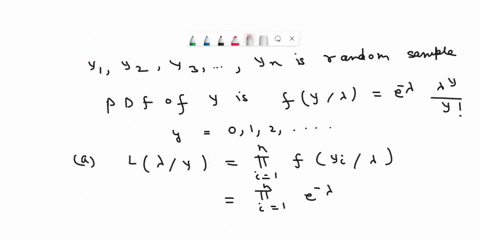 y1, y2, y3, ..., yn is random sample
PDf of y is f(y/λ) = e^-λ λ^y/y!
y = 0, 1, 2, ....
(a) L(λ/y) = ∏_{i=1}^{n} f(yi/λ)
= ∏_{i=1}^{n} e^-λ